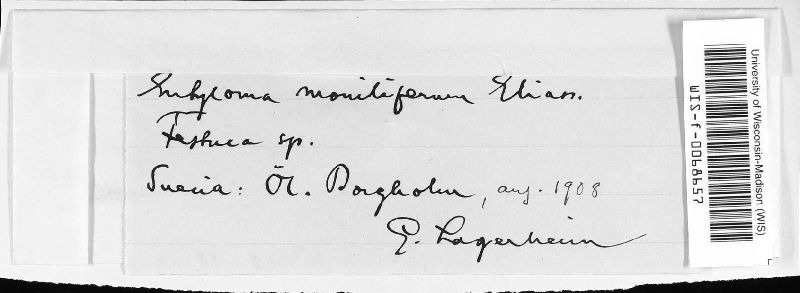 Entyloma moniliferum Eliass.
Festuca sp.
Suecia: Öl. Borgholm, aug. 1908
G. Lagerheim
University of Wisconsin-Madison (WIS)
WIS-f-0068957